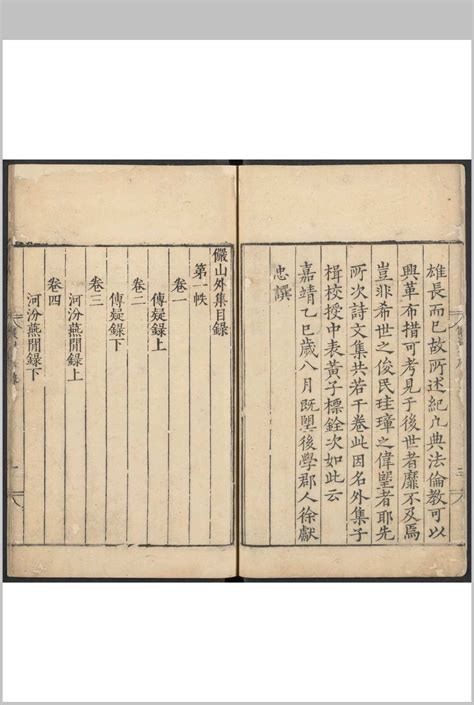 雄長而已故所述紀凡典法倫教可以
興革布措可考見于後世者靡不及焉
豈非希世之俊民珪璋之偉望者耶先
所次詩文集共若干卷此因名外集子
楫校授中表黃子標銓次如此云
嘉靖乙巳歲八月既望後學郡人徐獻
忠譔
儼山外集目錄
第一帙
卷一
傳疑錄上
卷二
傳疑錄下
卷三
河汾燕閒錄上
卷四
河汾燕閒錄下